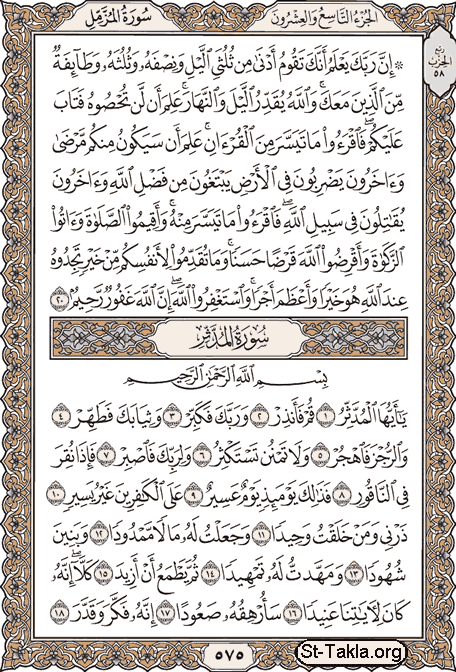 سُورَةُ المُزَّمِّل
الجُزْءُ التَّاسِعُ وَالعِشْرُونَ
ربع
الحزب
٥٨
۞ إِنَّ رَبَّكَ يَعْلَمُ أَنَّكَ تَقُومُ أَدْنَىٰ مِن ثُلُثَىِ ٱلَّيْلِ وَنِصْفَهُۥ وَثُلُثَهُۥ وَطَآئِفَةٌ
مِّنَ ٱلَّذِينَ مَعَكَۚ وَٱللَّهُ يُقَدِّرُ ٱلَّيْلَ وَٱلنَّهَارَۚ عَلِمَ أَن لَّن تُحْصُوهُ فَتَابَ
عَلَيْكُمْۖ فَٱقْرَءُوا۟ مَا تَيَسَّرَ مِنَ ٱلْقُرْءَانِۚ عَلِمَ أَن سَيَكُونُ مِنكُم مَّرْضَىٰ
وَءَاخَرُونَ يَضْرِبُونَ فِى ٱلْأَرْضِ يَبْتَغُونَ مِن فَضْلِ ٱللَّهِ وَءَاخَرُونَ
يُقَٰتِلُونَ فِى سَبِيلِ ٱللَّهِۖ فَٱقْرَءُوا۟ مَا تَيَسَّرَ مِنْهُۚ وَأَقِيمُوا۟ ٱلصَّلَوٰةَ وَءَاتُوا۟
ٱلزَّكَوٰةَ وَأَقْرِضُوا۟ ٱللَّهَ قَرْضًا حَسَنًاۚ وَمَا تُقَدِّمُوا۟ لِأَنفُسِكُم مِّنْ خَيْرٍ تَجِدُوهُ
عِندَ ٱللَّهِ هُوَ خَيْرًا وَأَعْظَمَ أَجْرًاۚ وَٱسْتَغْفِرُوا۟ ٱللَّهَۖ إِنَّ ٱللَّهَ غَفُورٌ رَّحِيمٌۢ ٢٠
سُورَةُ المُدَّثِّرِ
بِسْمِ ٱللَّهِ ٱلرَّحْمَٰنِ ٱلرَّحِيمِ
يَٰٓأَيُّهَا ٱلْمُدَّثِّرُ ١ قُمْ فَأَنذِرْ ٢ وَرَبَّكَ فَكَبِّرْ ٣ وَثِيَابَكَ فَطَهِّرْ ٤
وَٱلرُّجْزَ فَٱهْجُرْ ٥ وَلَا تَمْنُن تَسْتَكْثِرُ ٦ وَلِرَبِّكَ فَٱصْبِرْ ٧ فَإِذَا نُقِرَ
فِى ٱلنَّاقُورِ ٨ فَذَٰلِكَ يَوْمَئِذٍ يَوْمٌ عَسِيرٌ ٩ عَلَى ٱلْكَٰفِرِينَ غَيْرُ يَسِيرٍ ١٠
ذَرْنِى وَمَنْ خَلَقْتُ وَحِيدًا ١١ وَجَعَلْتُ لَهُۥ مَالًا مَّمْدُودًا ١٢ وَبَنِينَ
شُهُودًا ١٣ وَمَهَّدتُّ لَهُۥ تَمْهِيدًا ١٤ ثُمَّ يَطْمَعُ أَنْ أَزِيدَ ١٥ كَلَّآۖ إِنَّهُۥ
كَانَ لِءَايَٰتِنَا عَنِيدًا ١٦ سَأُرْهِقُهُۥ صَعُودًا ١٧ إِنَّهُۥ فَكَّرَ وَقَدَّرَ ١٨
٥٧٥
St-Takla.org